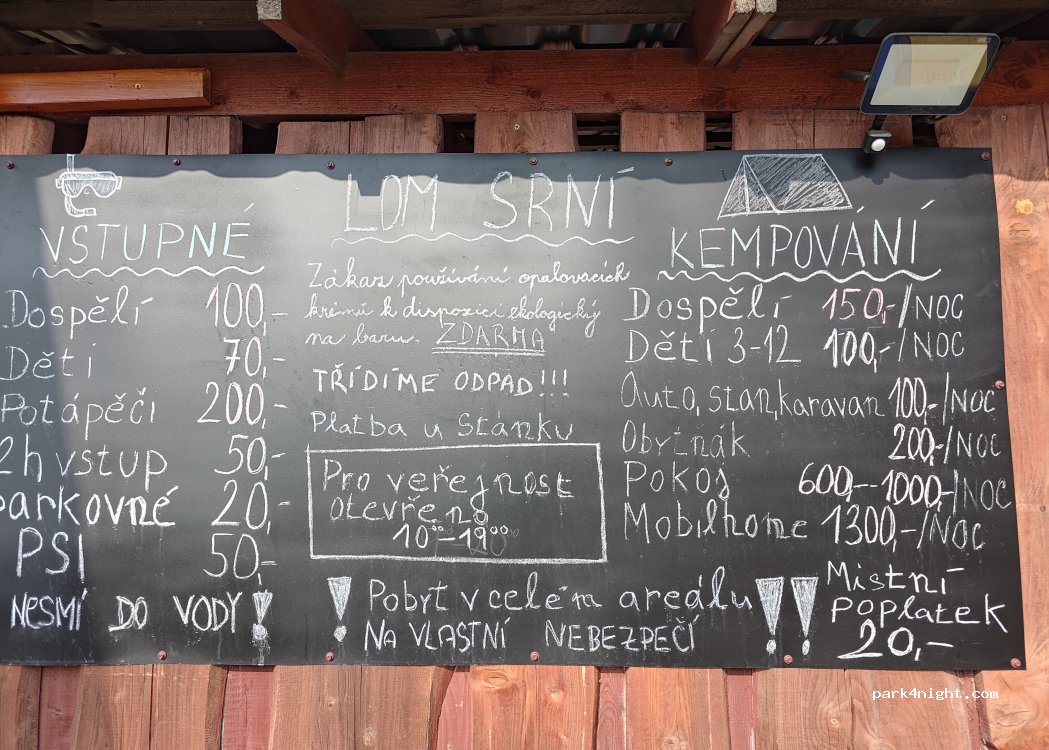 LOM SRNÍ
VSTUPNÉ
Dospělí 100,-
Děti 70,-
Potápěči 200,-
2h vstup 50,-
parkovné 20,-
PSI 50,-
NESMÍ DO VODY!
Zákaz používání opalovacích
krémů k dispozici ekologický
na baru. ZDARMA
TŘÍDÍME ODPAD!!!
Platba u stánku
Pro veřejnost
otevřeno
10⁰⁰-19⁰⁰
! Pobyt v celém areálu !!
NA VLASTNÍ NEBEZPEČÍ
KEMPOVÁNÍ
Dospělí 150,-/NOC
Děti 3-12 100,-/NOC
Auto, stan, karavan 100,-/NOC
Obytňák 200,-/NOC
Pokoj 600,--1000,-/NOC
Mobilhome 1300,-/NOC
Místní
poplatek
20,-
park4night.com